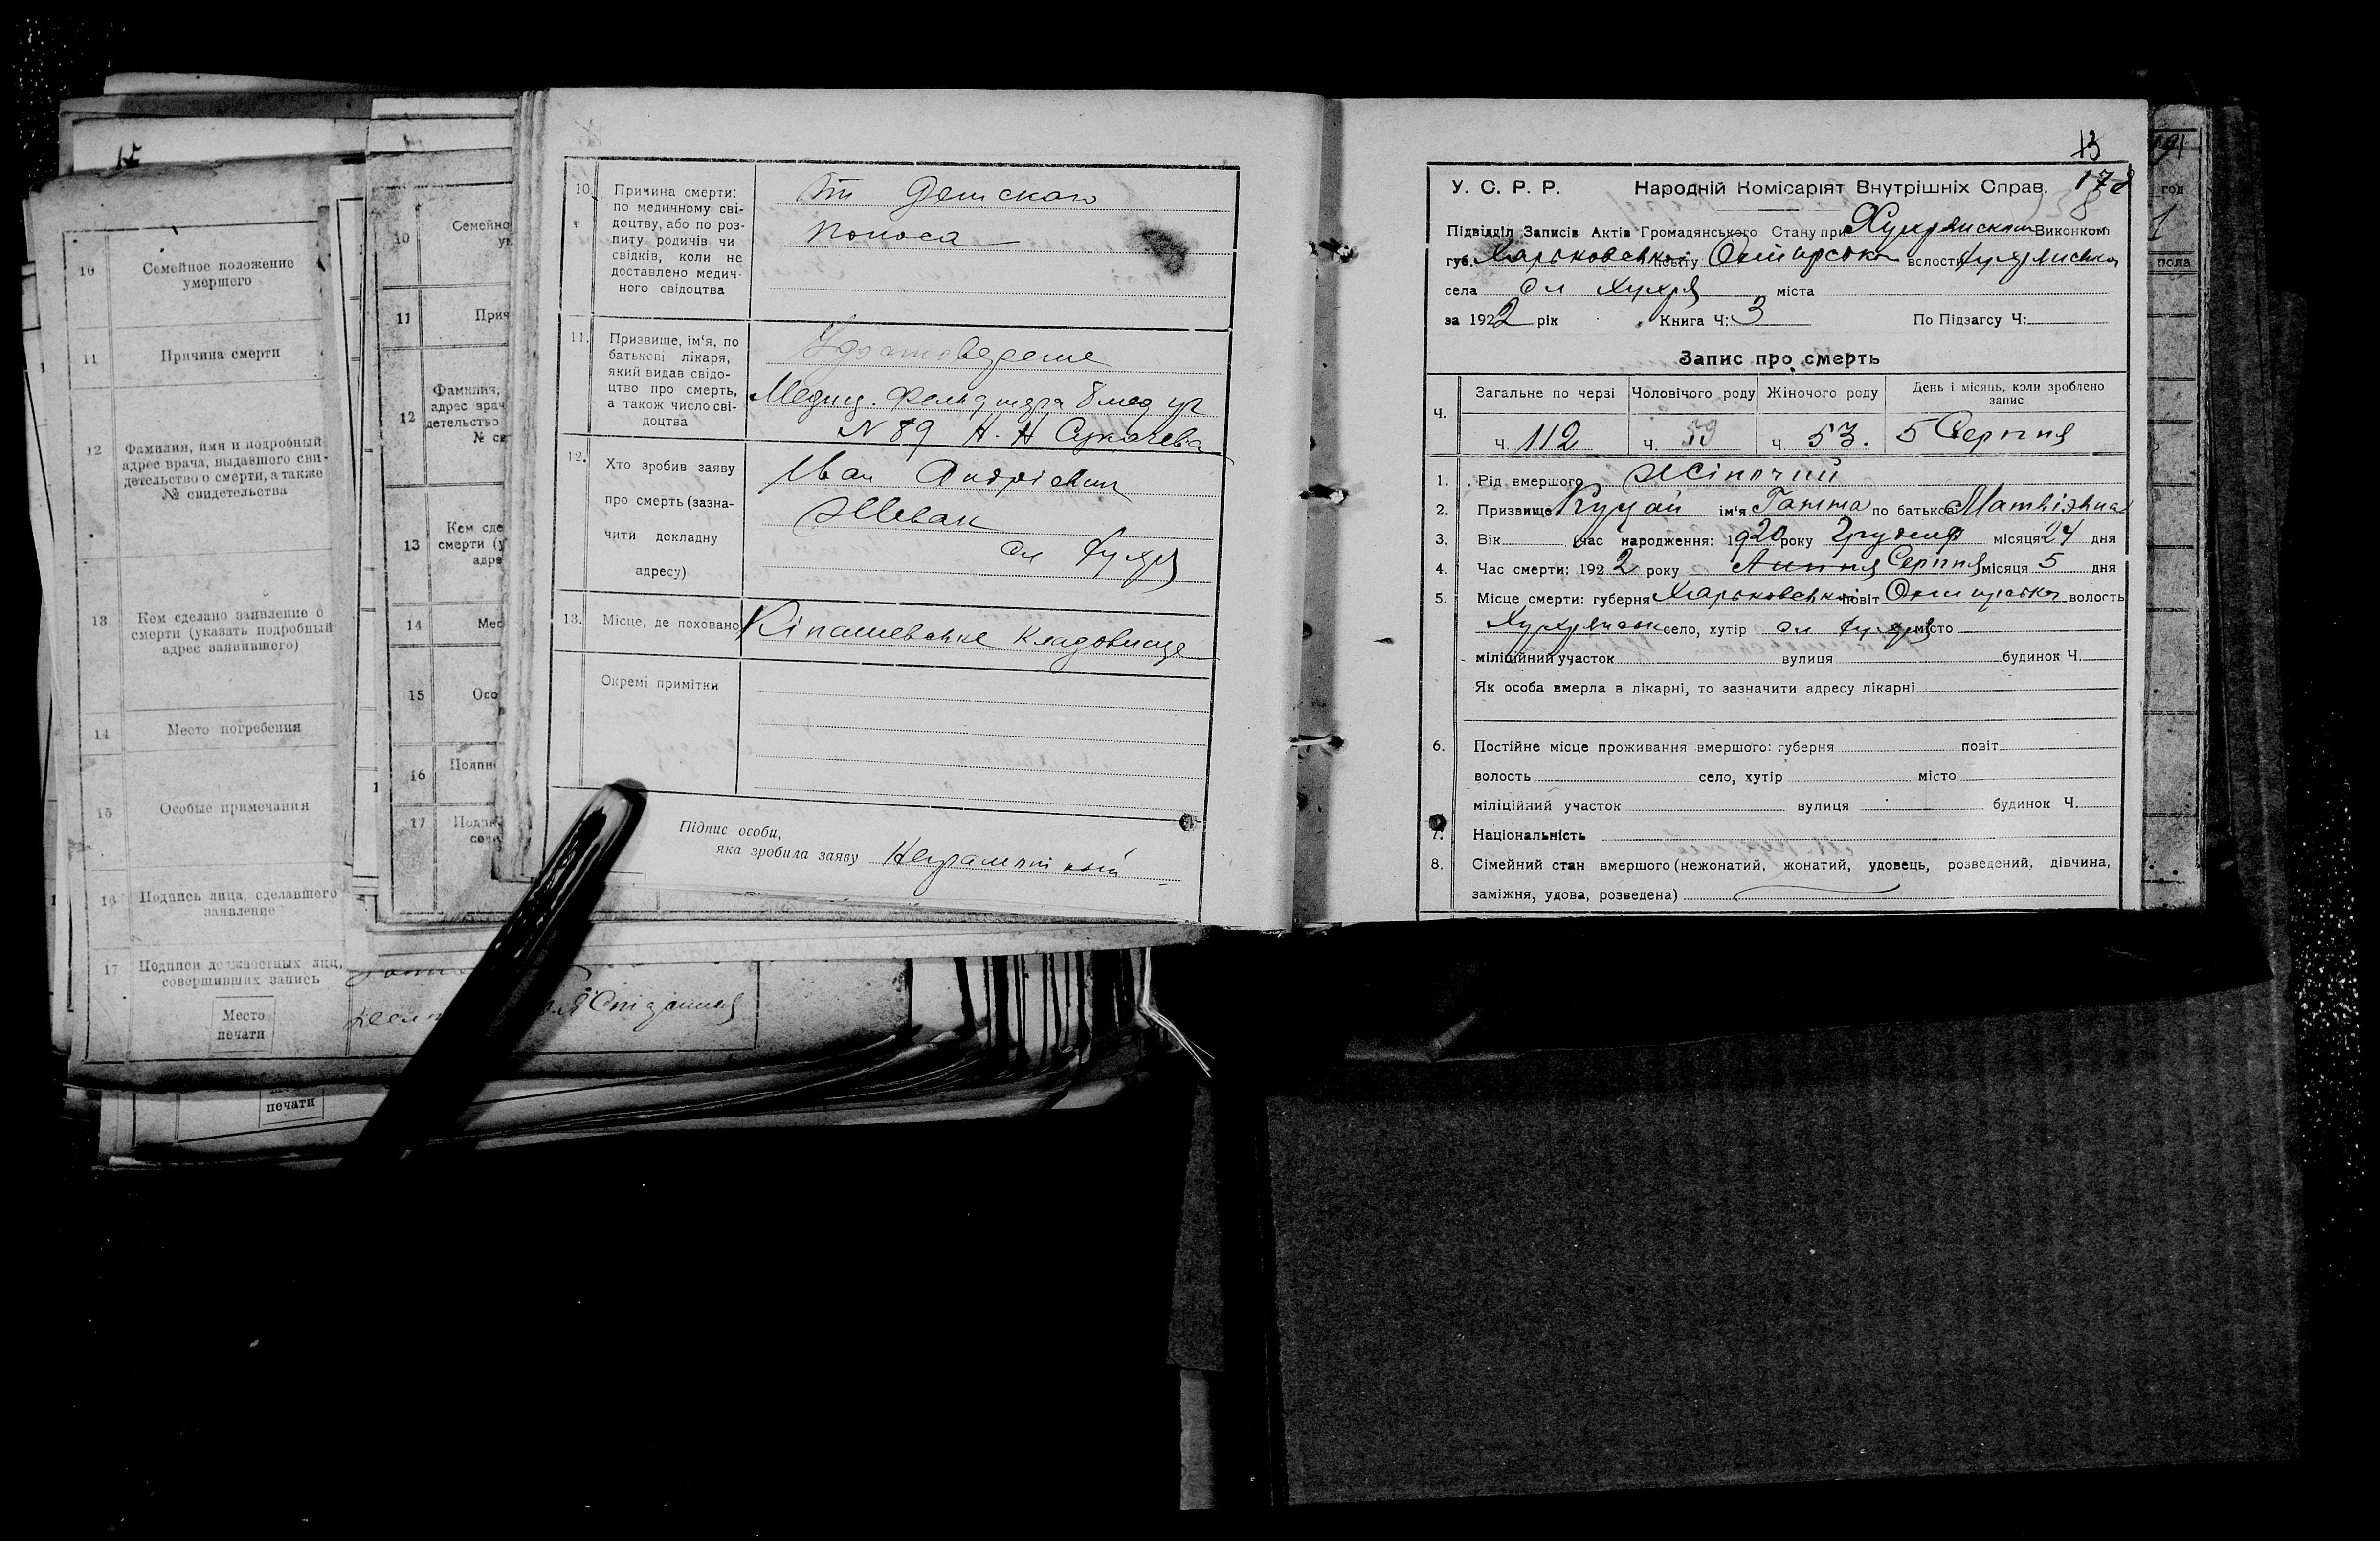 10
Семейное положение
умершего
11
Причина смерти
12
Фамилия, имя и подробный
адрес врача, выдавшего сви-
детельство о смерти, а также
№ свидетельства
13
Кем сделано заявление о
смерти (указать подробный
адрес заявившего)
14
Место погребения
15
Особые примечания
16
Подпись лица, сделавшего
заявление
17
Подписи должностных лиц,
совершивших запись
Место
печати
печати
10
Семейно
11
Прич
12
Фамилия,
адрес врач
детельство
13
Кем сде
смерти (у
адре
14
Мес
15
Осо
16
Подпи
17
10. Причина смерти:
по медичному сві-
доцтву, або по роз-
питу родичів чи
свідків, коли не
доставлено медич-
ного свідоцтва
От Детскаго
поноса
11. Призвище, ім'я, по
батькові лікаря,
який видав свідо-
цтво про смерть,
а також число сві-
доцтва
Удостоверение
Медиц. Фельдшера 8 мед уч
N 89 Н. Н Сукачева
12. Хто зробив заяву
про смерть (зазна-
чити докладну
адресу)
Иван Андріевич
Шевак
сл Хухря
13. Місце, де поховано
Кіпашевське кладовище
Окремі примітки
Підпис особи,
яка зробила заяву Неграмотний
13
178
У. С. Р. Р. Народній Комісаріят Внутрішніх Справ.
Підвідділ Записів Актів Громадянського Стану при Хухрянском Виконкомі
губ. Харьковська повіту Охтирська волости Хухрянська
села сл Хухря міста
за 1922 рік Книга Ч: 3 По Підзагсу Ч:
Запис про смерть
Ч. Загальне по черзі Чоловічого роду Жіночого роду День і місяць, коли зроблено
запис
ч. 112 ч. 59 ч 53. 5 Серпня
1. Рід вмершого Жіночий
2. Призвище Куцай ім'я Ганна по батькові Матвіэвна
3. Вік час народження: 1920 року Грудня місяця 24 дня
4. Час смерти: 1922 року Липня Серпня місяця 5 дня
5. Місце смерти: губерня Харьковська повіт Охтирська волость
Хухрянськ село, хутір сл Хухря місто
міліційний участок вулиця будинок Ч.
Як особа вмерла в лікарні, то зазначити адресу лікарні
6. Постійне місце проживання вмершого: губерня повіт
волость село, хутір місто
міліційний участок вулиця будинок Ч.
7. Національність
8. Сімейний стан вмершого (нежонатий, жонатий, удовець, розведений, дівчина,
заміжня, удова, розведена)
год
пола